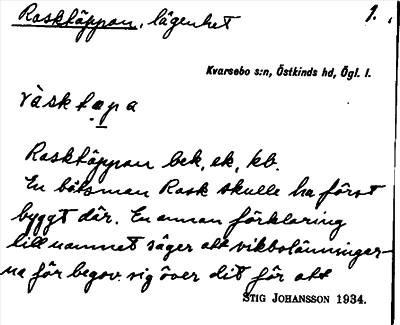 Rosktäppan, lägenhet 1.
Kvarsebo s:n, Östkinds hd, Ögl. l.
råsktæpa
Rosktäppan bek, ek, kb.
En båtsman Rosk skulle ha först
byggt där. En annan förklaring
till namnet säger att vikbolänningar-
na får begov. sig över dit för att
STIG JOHANSSON 1934.